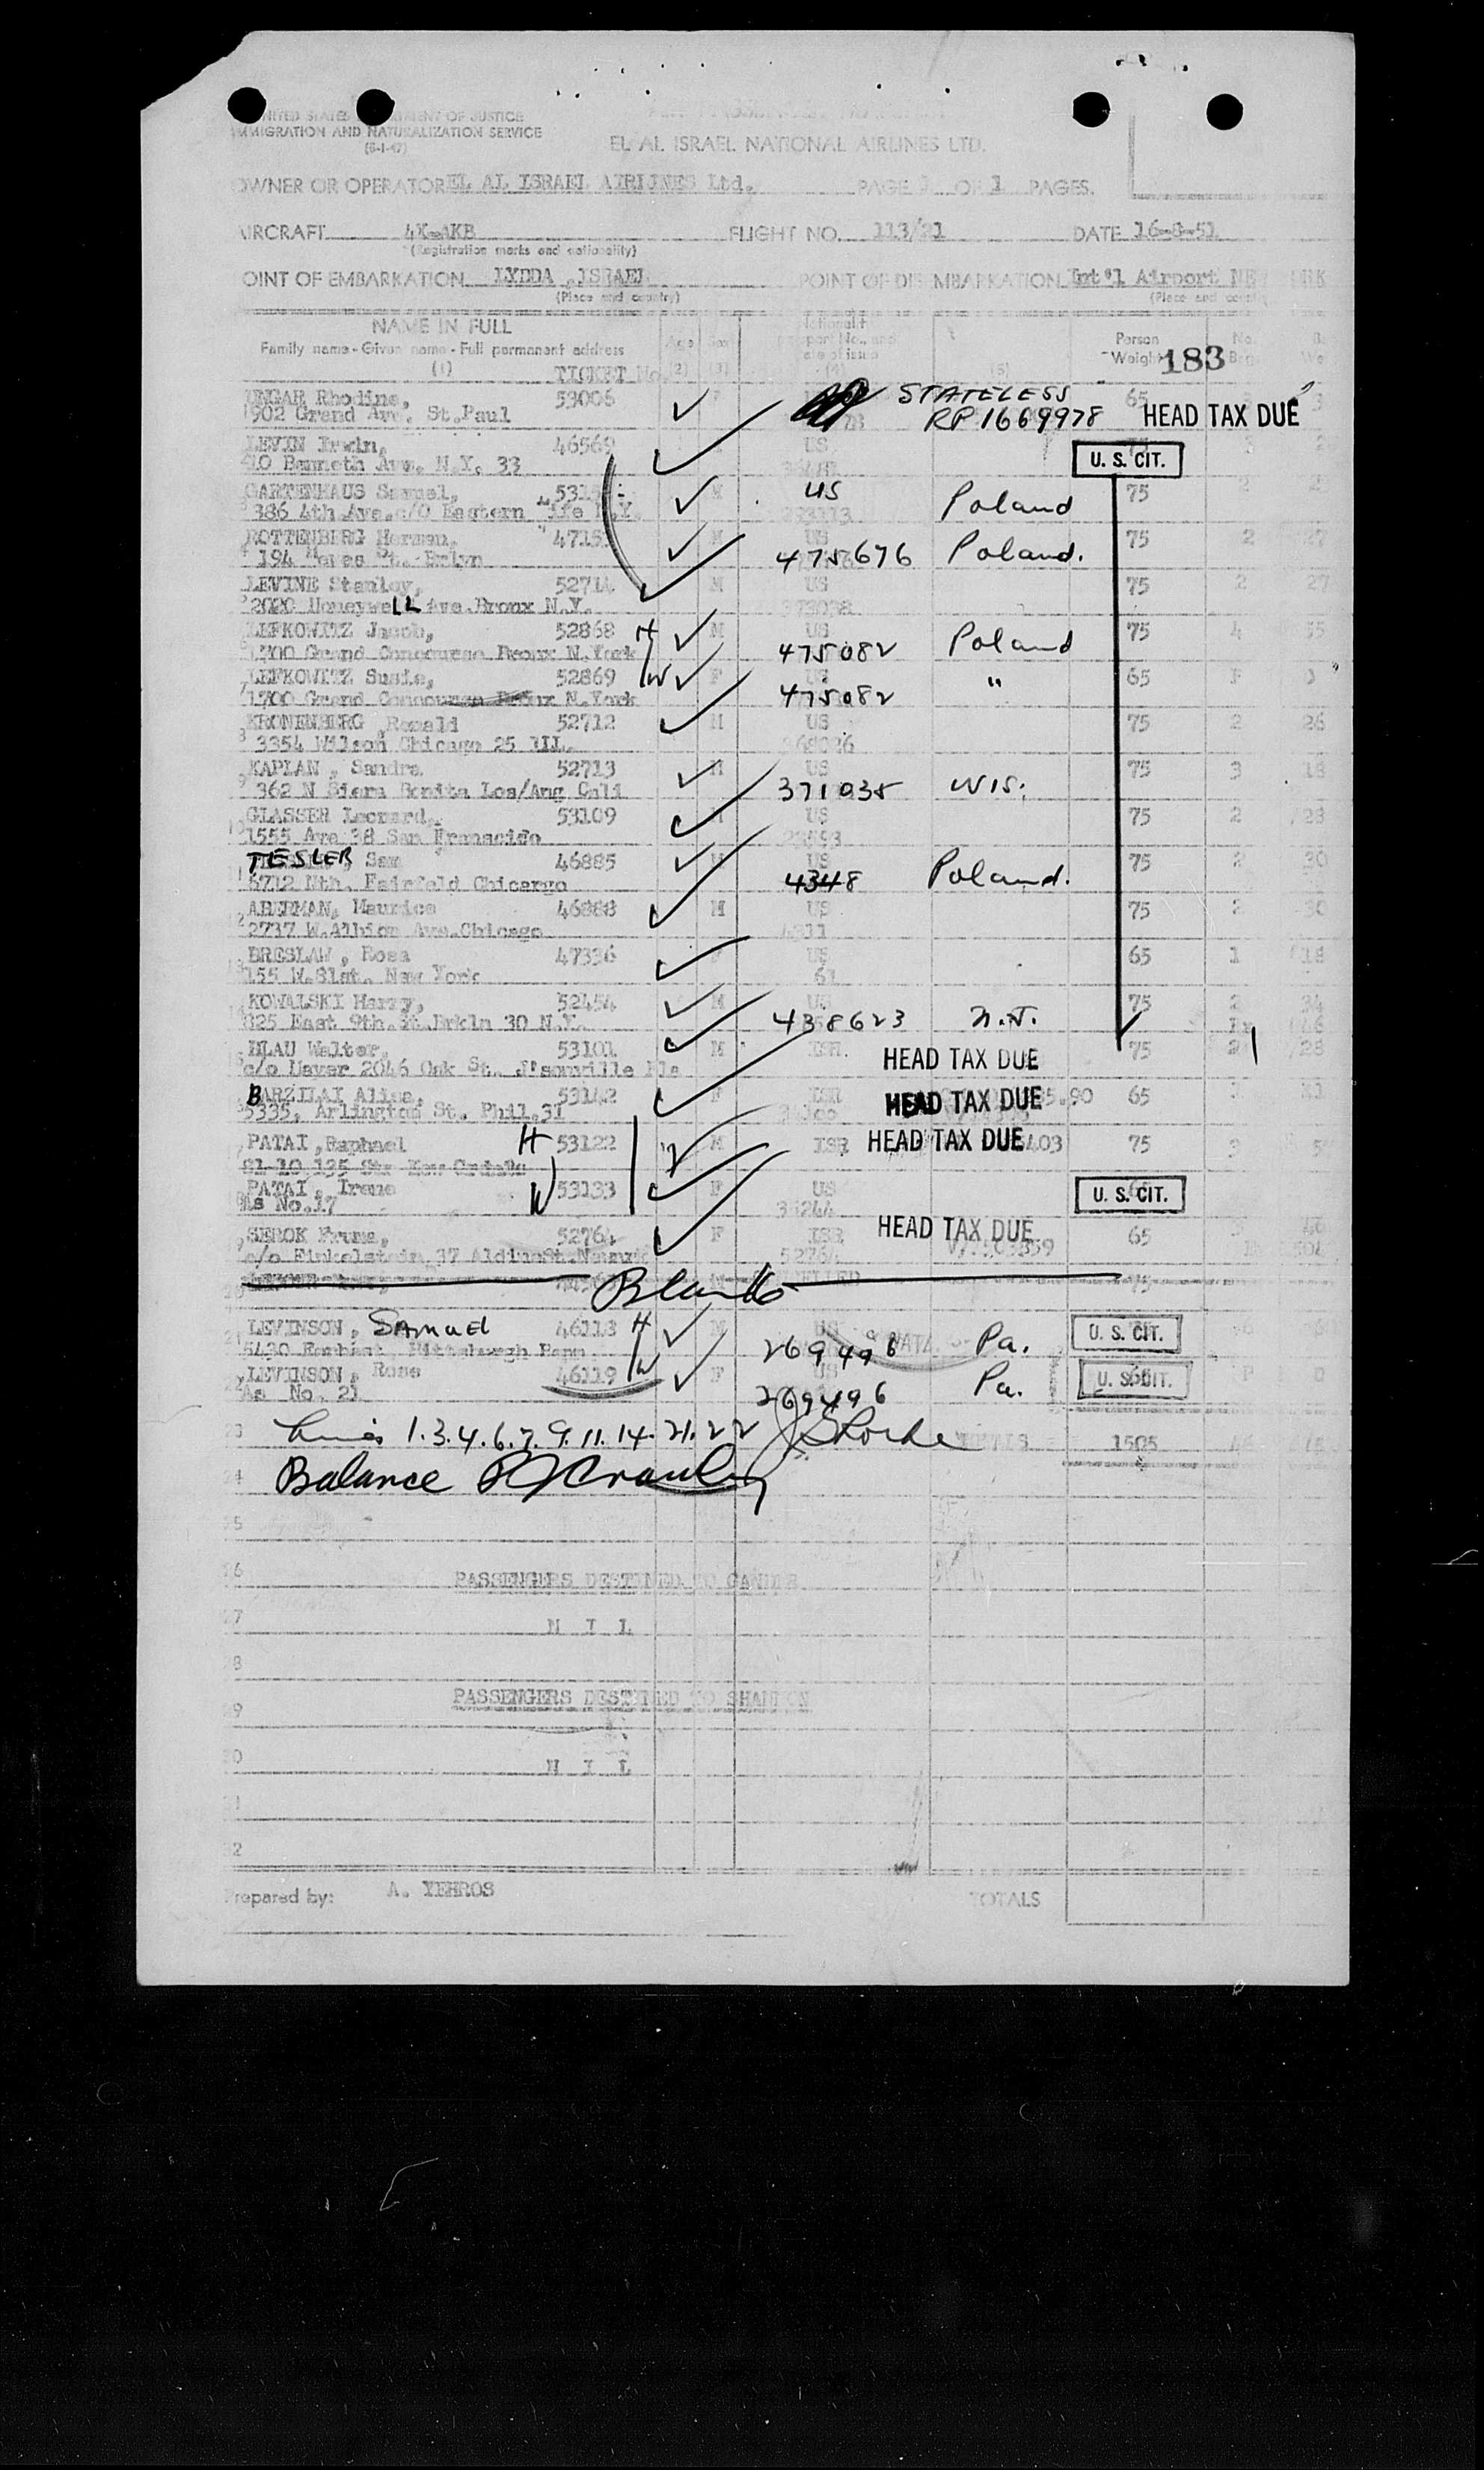 UNITED STATES DEPARTMENT OF JUSTICE
IMMIGRATION AND NATURALIZATION SERVICE
(8-1-47)
EL AL ISRAEL NATIONAL AIRLINES LTD.
OWNER OR OPERATOR EL AL ISRAEL AIRLINES Ltd. PAGE 1 OF 1 PAGES.
AIRCRAFT 4X-AKB FLIGHT NO. 113/21 DATE 16-8-51
(Registration marks and nationality)
POINT OF EMBARKATION LYDDA, ISRAEL POINT OF DISEMBARKATION Int'l Airport
(Place and country) (Place and country)
NAME IN FULL
Family name - Given name - Full permanent address Age Sex Person Weight 183
(1) TICKET No. (2) (3) (4) (5)
UNGAR Rhodine, 53006 F STATELESS 65 HEAD TAX DUE
902 Grand Ave. St.Paul RP 1669978
LEVIN Irwin, 46569 US 75 U. S. CIT.
Benneth Ave. N.Y. 33
GARTENHAUS Samuel, M US Poland 75
386 4th Ave. c/o Eastern Life N.Y.
ROTTENBERG Herman, M US Poland. 75 2 27
194 St. Brlyn 475676
LEVINE Stanley, 52714 M US 75 2 27
2020 Honeywell Ave Bronx N.Y.
LEFKOWITZ Jacob, 52868 H M US Poland 75 4 55
1700 Grand Concourse Bronx N.York 475082
LEFKOWITZ Susie, 52869 W F US " 65 P 0
1700 Grand Concourse Bronx N.York 475082
KRONENBERG, Ronald 52712 M US 75 2 26
3354 Wilson Chicago 25 Ill. 368026
KAPLAN, Sandra 52713 M US 75 3 18
362 N Siera Bonita Los/Ang Cali 371035 WIS.
GLASSER Leonard, 53109 M US 75 2 23
1555 Ave 38 San Franscido
TESLER, Sam 46885 M US Poland. 75 2 30
6712 Nth. Fairfeld Chicargo 4348
ABERMAN, Maurice 46888 M US 75 2 30
2737 W.Albion Ave.Chicago 4311
BRESLAW, Rosa 47336 F US 65 1 18
155 W.81st. New York 61
KOWALSKI Harry, 52454 M US 75 2 34
825 East 9th. St.Brkln 30 N.Y. 438623 N.J.
BLAU Walter, 53101 M ISR. HEAD TAX DUE 75 2 28
c/o Mayer 2046 Oak St. J'sonville Fla
BARZILAI Aliza, 53142 F ISR HEAD TAX DUE 65
5335, Arlington St. Phil.31
PATAI, Raphael H 53122 M ISR HEAD TAX DUE 75
PATAI, Irene W 53133 F US U. S. CIT.
As No.17 35244
SEROK Fruma, 52764 F ISR HEAD TAX DUE 65
c/o Finkelstein 37 Aldine St.Newark 52764
Blank
LEVINSON, SAMUEL 46118 H M US Pa. U. S. CIT.
5430 Pittsburgh Penn 269496
LEVINSON, Rose 46119 W F US Pa. U. S. CIT.
As No. 21 269496
23 Lines 1.3.4.6.7.9.11.14.21.22 TOTALS 1505
24 Balance
25
26 PASSENGERS DESTINED TO GANDER
27 N I L
28
29 PASSENGERS DESTINED TO SHANNON
30 N I L
31
32
Prepared by: A. YEHROS TOTALS